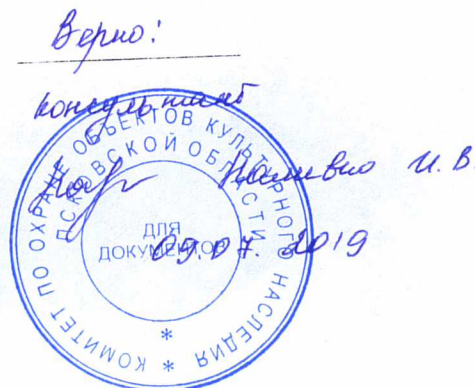 Верно:
консультант
И. В.
09.07.2019
КОМИТЕТ ПО ОХРАНЕ ОБЪЕКТОВ КУЛЬТУРНОГО НАСЛЕДИЯ *
ПСКОВСКОЙ ОБЛАСТИ
ДЛЯ
ДОКУМЕНТОВ
*